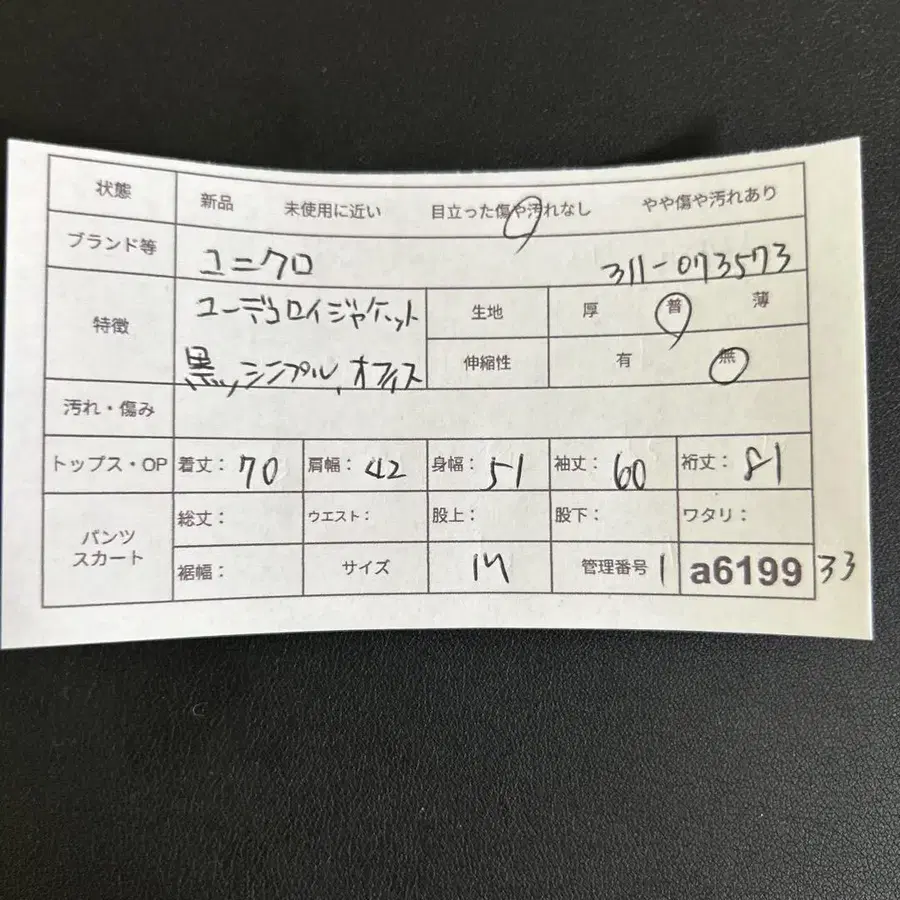 状態 新品 未使用に近い 目立った傷や汚れなし やや傷や汚れあり
ブランド等 ユニクロ 311-073573
特徴 コーデュロイジャケット 生地 厚 普 薄
黒、シンプル、オフィス 伸縮性 有 無
汚れ・傷み
トップス・OP 着丈: 70 肩幅: 42 身幅: 51 袖丈: 60 裄丈: 81
パンツ スカート 総丈: ウエスト: 股上: 股下: ワタリ:
裾幅: サイズ M 管理番号 1 a6199 33